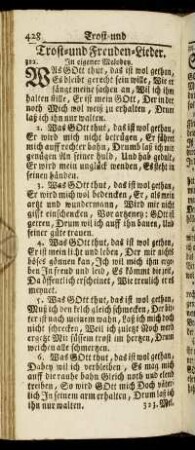 428 Trost-und
Trost-und Freuden-Lieder.
322. In eigener Melodey.
WAs GOtt thut, das ist wol gethan,
Es bleibt gerecht sein wille, Wie er
fängt meine sachen an, Wil ich ihm
halten stille, Er ist mein GOtt, Der in der
noth Mich wol weiß zu erhalten, Drum
laß ich ihn nur walten.
2. Was GOtt thut, das ist wol gethan,
Er wird mich nicht betriegen, Er führet
mich auff rechter bahn, Drumb laß ich mir
genügen An seiner huld, Und hab gedult,
Er wird mein unglück wenden, Es steht in
seinen händen.
3. Was GOtt thut, das ist wol gethan,
Er wird mich wol bedencken, Er, als mein
artzt und wunderman, Wird mir nicht
gifft einschencken, Vor artzeney: GOtt ist
getreu, Drum wil ich auff ihn bauen, Und
seiner güte trauen.
4. Was GOtt thut, das ist wol gethan,
Er ist mein licht und leben, Der mir nicht
böses gönnen kan, Ich wil mich ihm erge-
ben In freud und leid, Es kömmt die zeit,
Da öffentlich erscheinet, Wie treulich er es
meynet.
5. Was GOtt thut, das ist wol gethan,
Muß ich den kelch gleich schmecken, Der bit-
ter ist nach meinem wahn, Laß ich mich doch
nicht schrecken, Weil ich zuletzt Noch werd
ergetzt Mit süssem trost im hertzen, Drum
weichen alle schmertzen.
6. Was GOtt thut, das ist wol gethan,
Dabey wil ich verbleiben, Es mag mich
auff die rauhe bahn Gleich noth und elend
treiben, So wird GOtt mich Doch väter-
lich In seinem arm erhalten, Drum laß ich
ihn nur walten. 323. Mel.